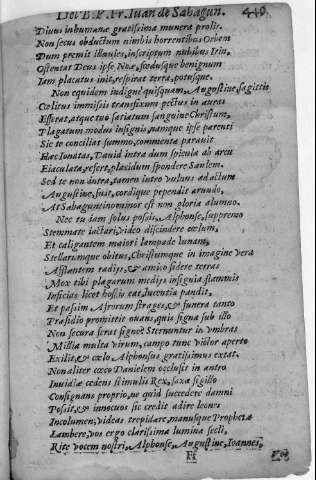 Del B. P. Fr. Iuan de Sahagun. 449
Diuus inhumanæ gratissima munera prolis.
Non secus obductum nimbis horrentibus Orbem
Dum premit illunies, inscriptum nubibus Irin,
Ostentat Deus ipse Noæ, fœdusque benignum
Iam placatus init, respirat terra, potusque.
Non equidem indignè quisquam, Augustine, sagittis
Cœlitus immissis transfixum pectus in auras
Efflorat, atque tuo satiatum sanguine Christum,
Plagatum modus insignis, namque ipse parenti
Sic te conciliat summo, commenta parauit
Hæc Ionatas, Dauid intra dum spicula ab arcu
Eiaculata, refert, placidum spondere Saulem.
Sed te non intra, tamen intro vulnus adactum
Augustine, fuit, cordique pependit arundo,
At Sahaguntinomino r est non gloria alumno.
Nec tu iam solus possis, Alphonse, supremo
Stemmate iactari, video discindere cœlum,
Et caligantem maiori lampade lunam,
Stellarumque obitus, Christumque in imagine vera
Asstantem radijs, & amico sidere terras
Mox tibi plagarum medijs insignia flammis
Inficias licet hostis eat, lucentia pandit,
Et passim Afrorum strages, & funera tanto
Præsidio promittit ouans, quis signa sub illo
Non secura feras signo? Sternuntur in vmbras
Millia multa virum, campo tunc victor aperto
Exilit, & cœlo Alphonsus gratissimus extat.
Non aliter cæco Danielem occlusit in antro
Inuidiæ cedens stimulis Rex, saxa sigillo
Consignans proprio, ne quid succedere damni
Possit, & innocuos sic credit adire leones
Incolumen, videas trepidare, manusque Prophetæ
Lambere, vos ergo clarissima lumina sæcli,
Rite vocem nostri, Alphonse, Augustine, Ioannes,
Ff Vos